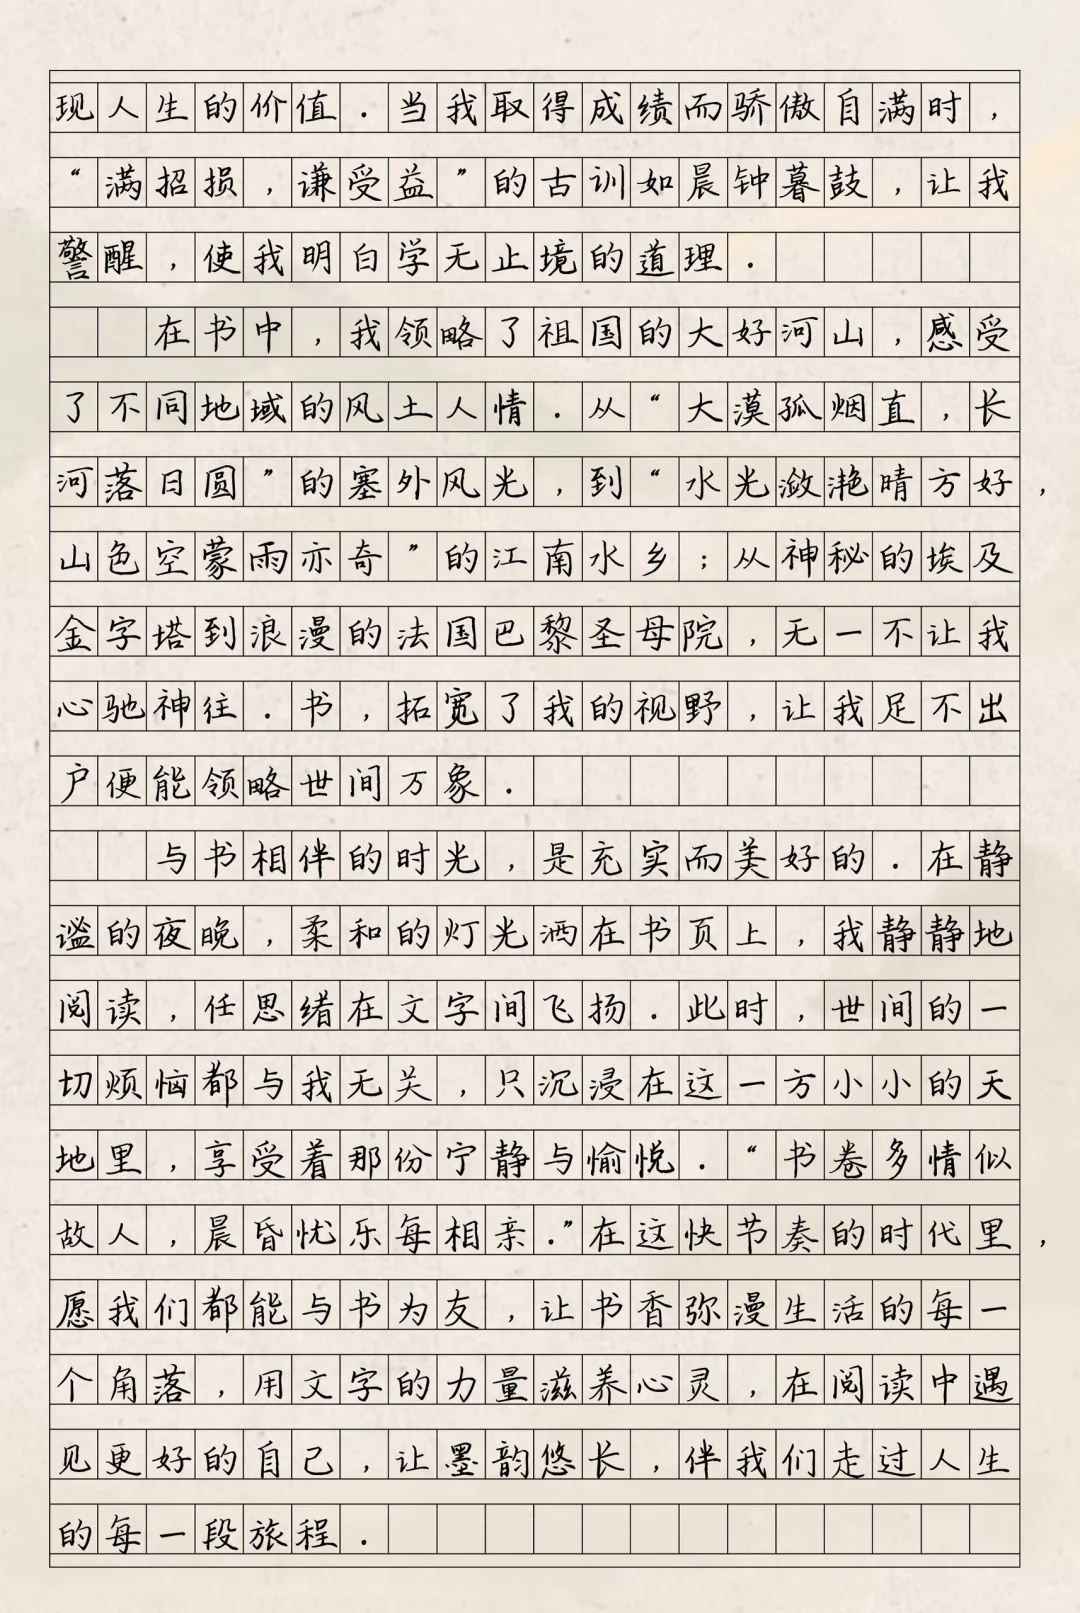 现人生的价值.当我取得成绩而骄傲自满时，
“满招损，谦受益”的古训如晨钟暮鼓，让我
警醒，使我明白学无止境的道理.
在书中，我领略了祖国的大好河山，感受
了不同地域的风土人情.从“大漠孤烟直，长
河落日圆”的塞外风光，到“水光潋滟晴方好，
山色空蒙雨亦奇”的江南水乡；从神秘的埃及
金字塔到浪漫的法国巴黎圣母院，无一不让我
心驰神往.书，拓宽了我的视野，让我足不出
户便能领略世间万象.
与书相伴的时光，是充实而美好的.在静
谧的夜晚，柔和的灯光洒在书页上，我静静地
阅读，任思绪在文字间飞扬.此时，世间的一
切烦恼都与我无关，只沉浸在这一方小小的天
地里，享受着那份宁静与愉悦.“书卷多情似
故人，晨昏忧乐每相亲.”在这快节奏的时代里，
愿我们都能与书为友，让书香弥漫生活的每一
个角落，用文字的力量滋养心灵，在阅读中遇
见更好的自己，让墨韵悠长，伴我们走过人生
的每一段旅程.